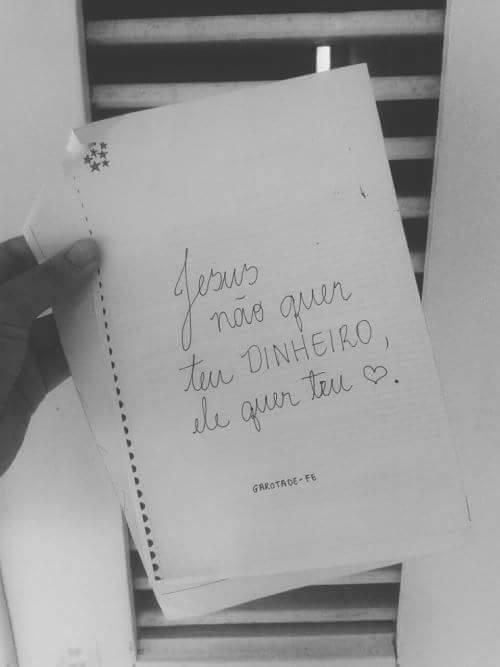 Jesus
não quer
teu DINHEIRO,
ele quer teu ♡.
GAROTADE-FE